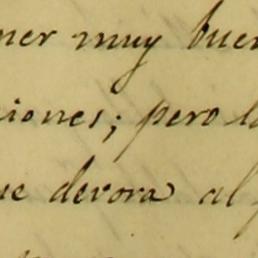 ner muy buen
iones; pero l
ue devora al